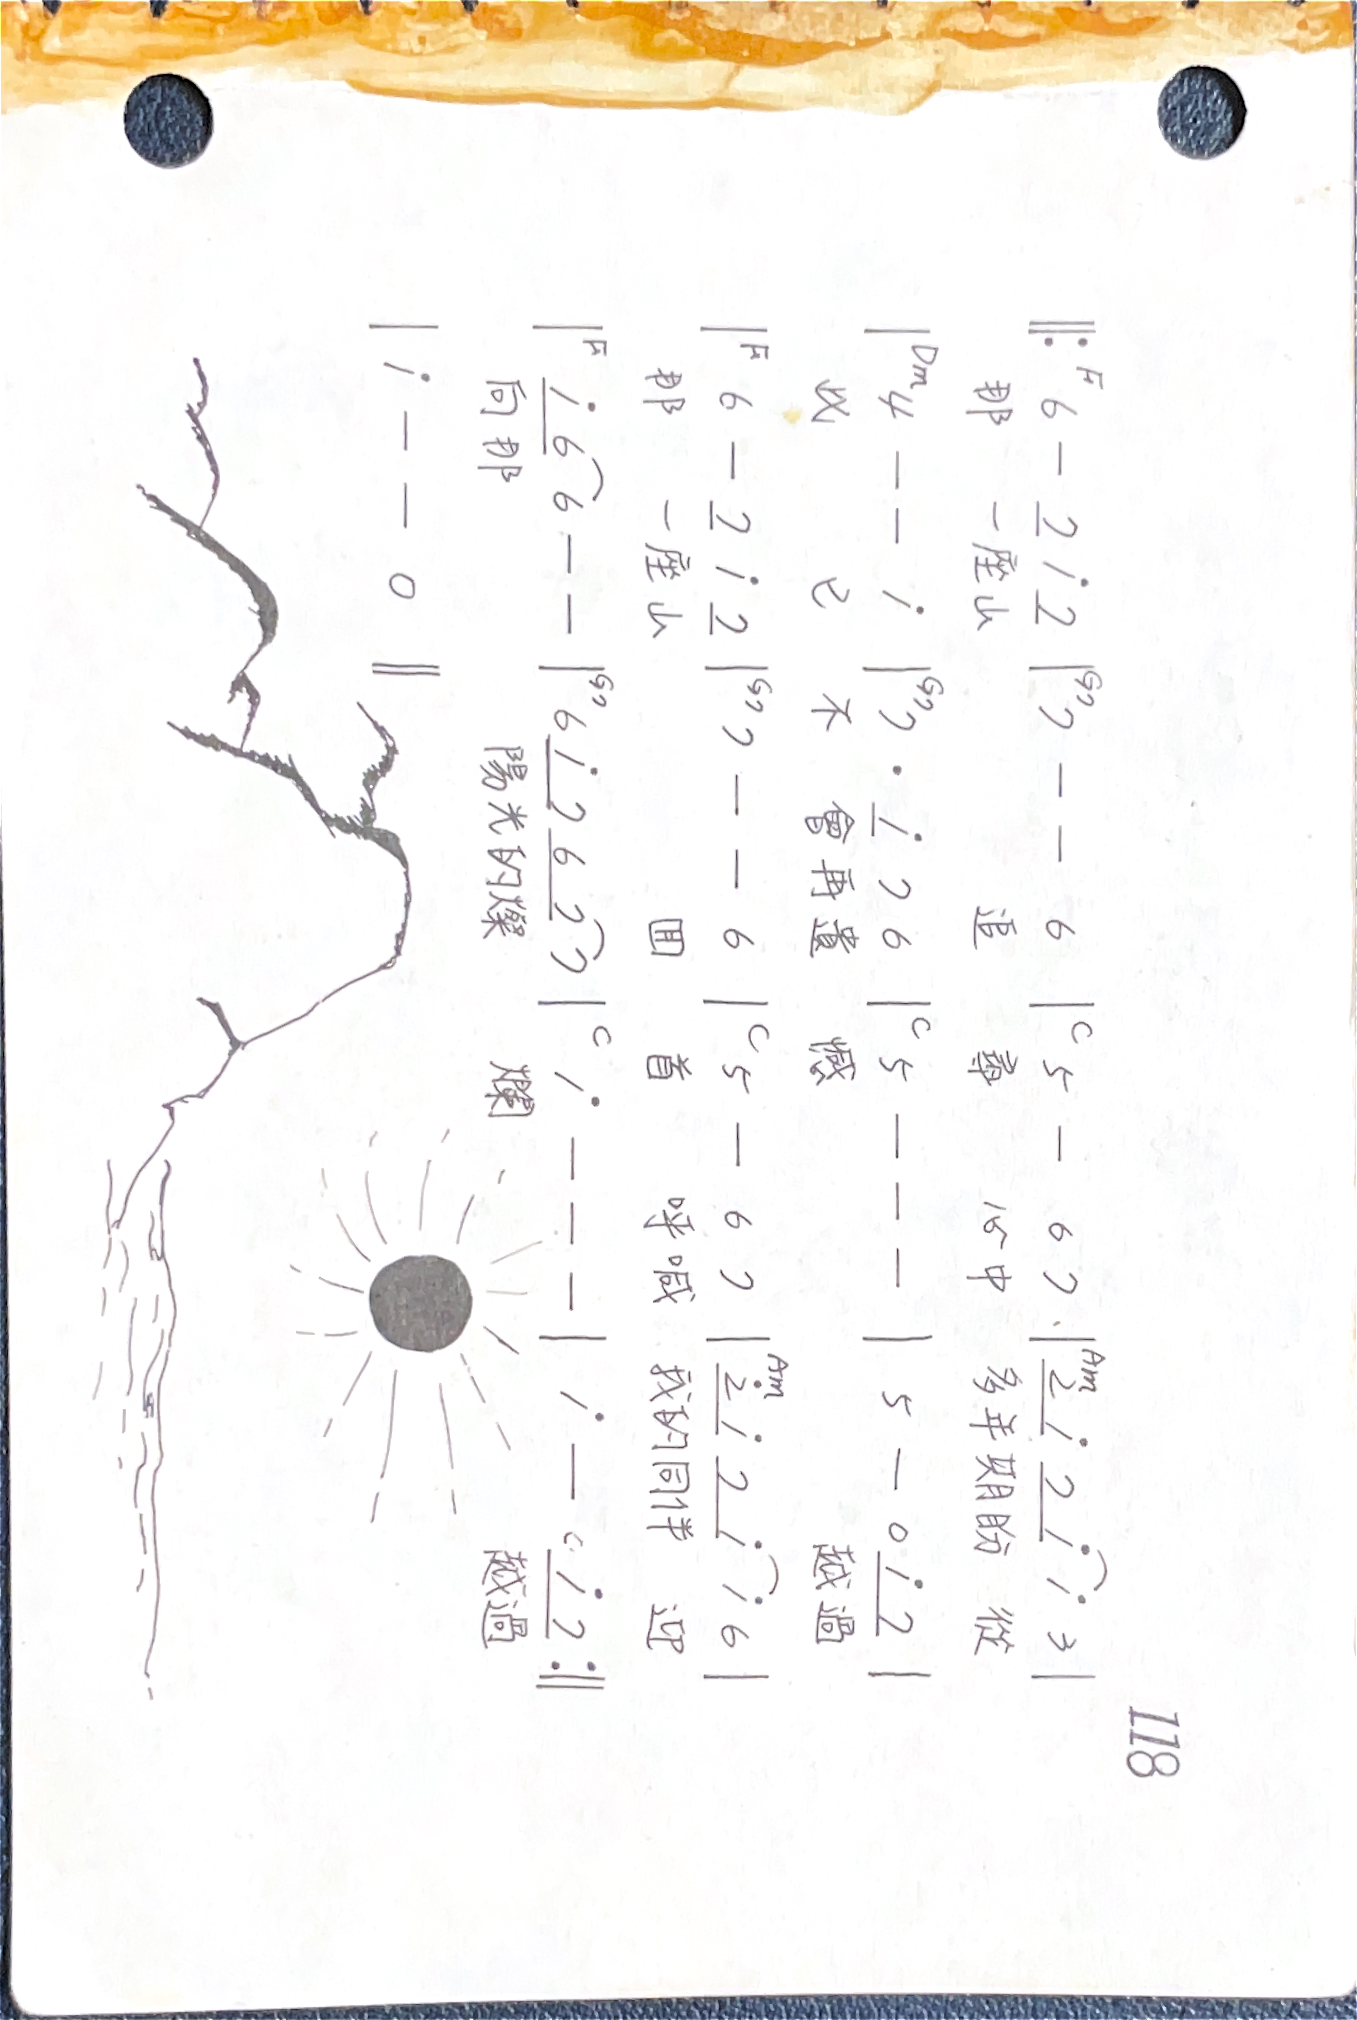 118
‖: F 6 — 7 i 7 | G7 7 — — 6 | C 5 — 6 7 · | Am 2̇ i 7 i i 3 |
那 一座山 追 尋 心中 多年期盼 從
| Dm 4 — — i | G7 7 · i 7 6 | C 5 — — — | 5 — 0 i 7 |
此 已 不 會再遺 憾 越過
| F 6 — 7 i 7 | G7 7 — — 6 | C 5 — 6 7 | Am 2̇ i 7 i i 6 |
那 一座山 回 首 呼喊 我的同伴 迎
| F i 6 6 — — | G7 6 i 7 6 7 7 | C i — — — | i — 0 i 7 :‖
向那 陽光的燦 爛 越過
| i — — 0 ‖